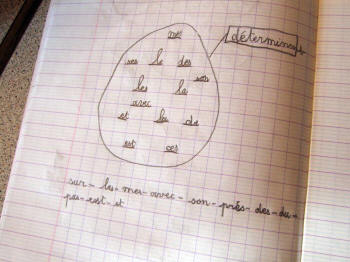 mes
déterminants
ses le des
son
les la
avec
et du
est ces
sur - les - mes - avec - son - près - des - du -
pas - est - et